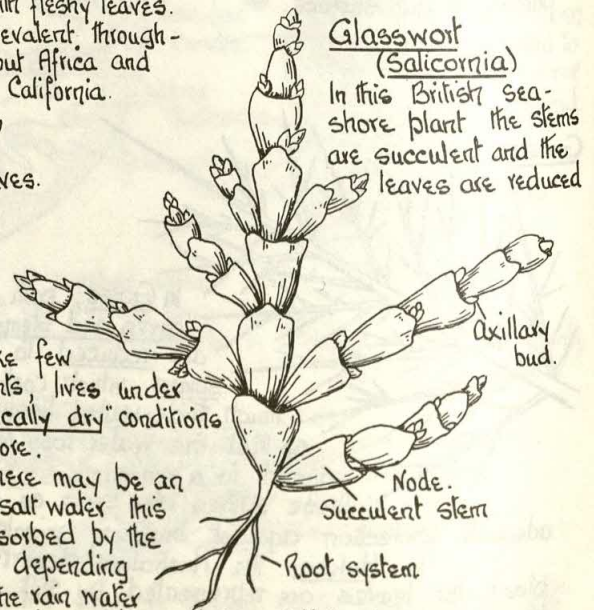 fleshy leaves.
evalent through-
out Africa and
California.
Glasswort
(Salicornia)
In this British sea-
shore plant the stems
are succulent and the
leaves are reduced
axillary
bud.
few
lives under
cally dry" conditions
ore.
ere may be an
salt water this
sorbed by the
depending
rain water
Node.
Succulent stem
Root system